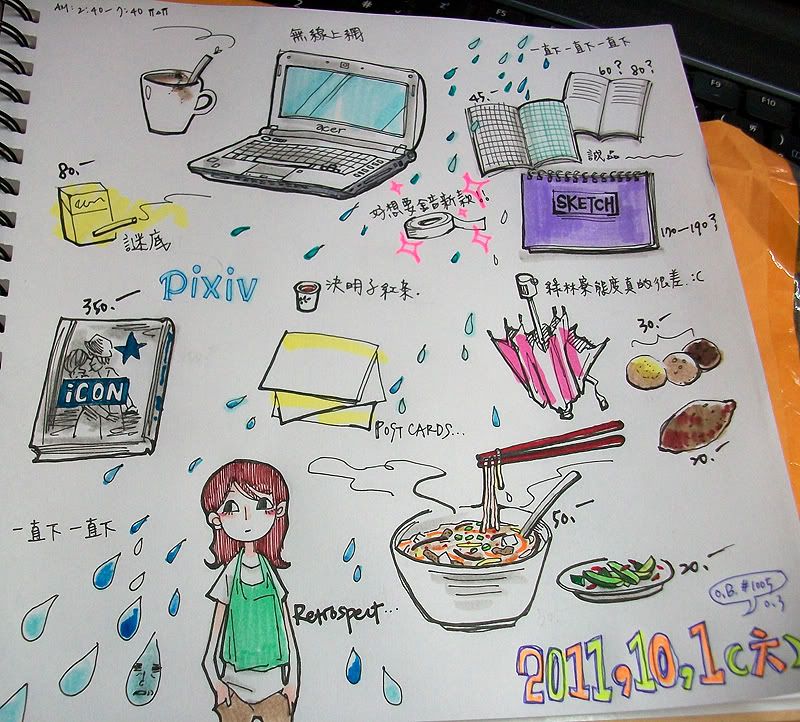 AM: 2:40-7:40
無線上網
一直下一直下一直下
60? 80?
45.-
acer
誠品
80.-
好想要錄音新款!!
SKETCH
170-190?
謎底
Pixiv
決明子紅茶.
綠林寮態度真的很差.:C
350.-
30.-
iCON
POST CARDS...
20.-
一直下一直下
50.-
20.-
Retrospect...
O.B. #1005
0.3
2011,10,1(六)
F9
F10